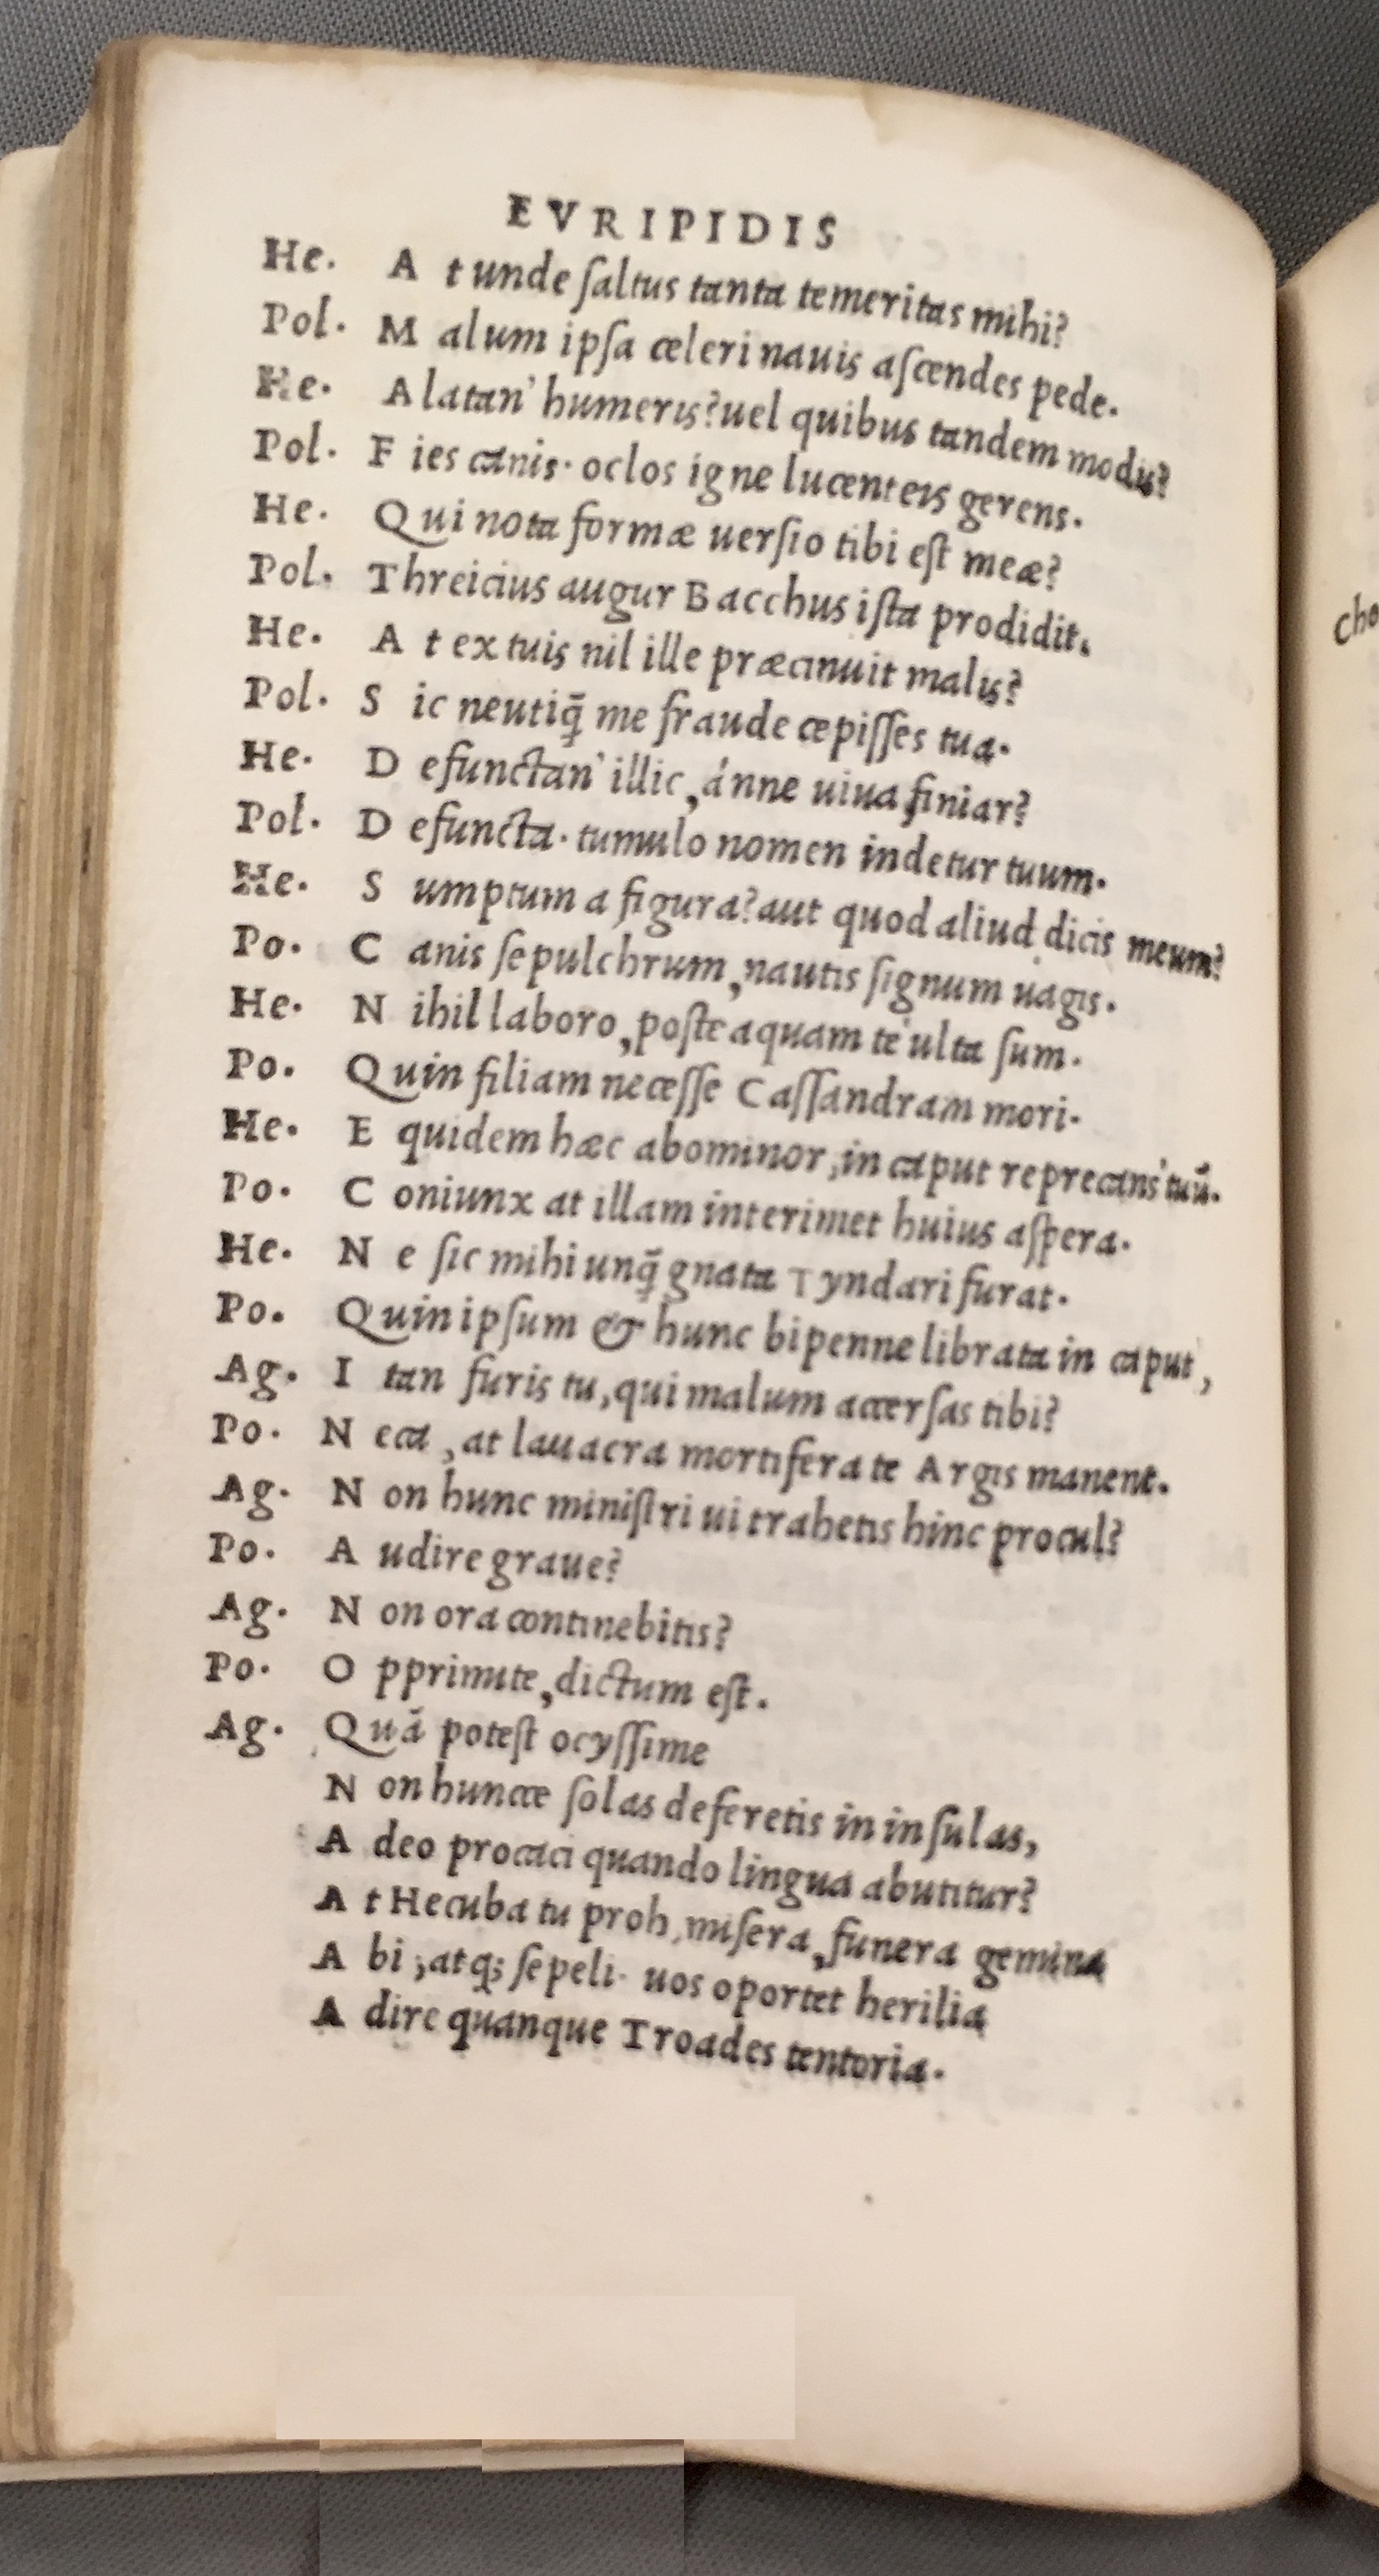 EVRIPIDIS
He. A t unde ſaltus tanta temeritas mihi?
Pol. M alum ipſa celeri nauis aſcendes pede.
He. A latan' humeris? uel quibus tandem modis?
Pol. F ies canis. oclos igne lucenteis gerens.
He. Q ui nota formæ uerſio tibi eſt meæ?
Pol. T hreicius augur Bacchus iſta prodidit.
He. A t ex tuis nil ille præcinuit malis?
Pol. S ic neutiq̃ me fraude cepiſſes tua.
He. D efunctan' illic, ánne uiua finiar?
Pol. D efuncta. tumulo nomen indetur tuum.
He. S umptum a figura? aut quod aliud dicis meum?
Po. C anis ſepulchrum, nautis ſignum uagis.
He. N ihil laboro, poſteaquam te' ulta ſum.
Po. Q uin filiam neceſſe Caſſandram mori.
He. E quidem hæc abominor, in caput reprecans' tuũ.
Po. C oniunx at illam interimet huius aſpera.
He. N e ſic mihi unq̃ gnata Tyndari furat.
Po. Q uin ipſum & hunc bipenne librata in caput,
Ag. I tan furis tu, qui malum accerſas tibi?
Po. N eca, at lauacra mortifera te Argis manent.
Ag. N on hunc miniſtri ui trahetis hinc procul?
Po. A udire graue?
Ag. N on ora continebitis?
Po. O pprimite, dictum eſt.
Ag. Q uã poteſt ocyſſime
N on huncce ſolas deferetis in inſulas,
A deo procaci quando lingua abutitur?
A t Hecuba tu proh, miſera, funera gemina
A bi; atq; ſepeli. uos oportet herilia
A dire quanque Troades tentoria.
cho